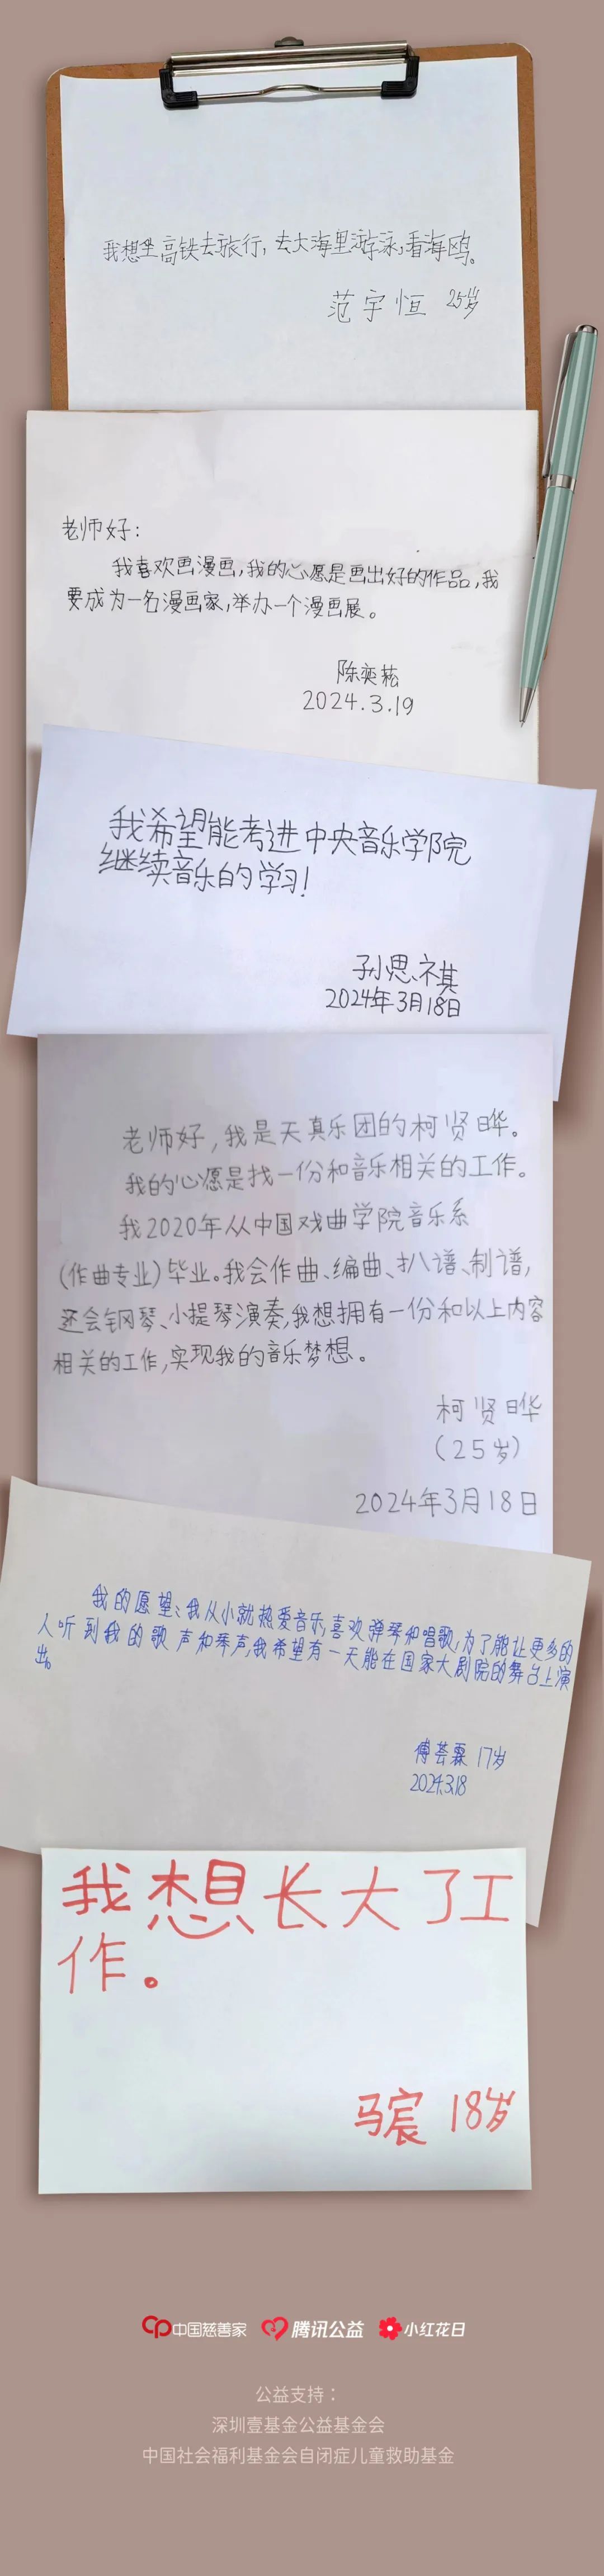 我想坐高铁去旅行，去大海里游泳，看海鸥。
范宇恒 25岁
老师好：
我喜欢画漫画，我的心愿是画出好的作品，我
要成为一名漫画家，举办一个漫画展。
陈奕菘
2024.3.19
我希望能考进中央音乐学院
继续音乐的学习！
孙思祺
2024年3月18日
老师好，我是天真乐团的柯贤晔。
我的心愿是找一份和音乐相关的工作。
我2020年从中国戏曲学院音乐系
（作曲专业）毕业。我会作曲、编曲、扒谱、制谱，
还会钢琴、小提琴演奏，我想拥有一份和以上内容
相关的工作，实现我的音乐梦想。
柯贤晔
（25岁）
2024年3月18日
我的愿望：我从小就热爱音乐，喜欢弹琴和唱歌，为了能让更多的
人听到我的歌声和琴声，我希望有一天能在国家大剧院的舞台上演
出。
傅荟霖 17岁
2024.3.18
我想长大了工
作。
马宸 18岁
中国慈善家 腾讯公益 小红花日
公益支持：
深圳壹基金公益基金会
中国社会福利基金会自闭症儿童救助基金